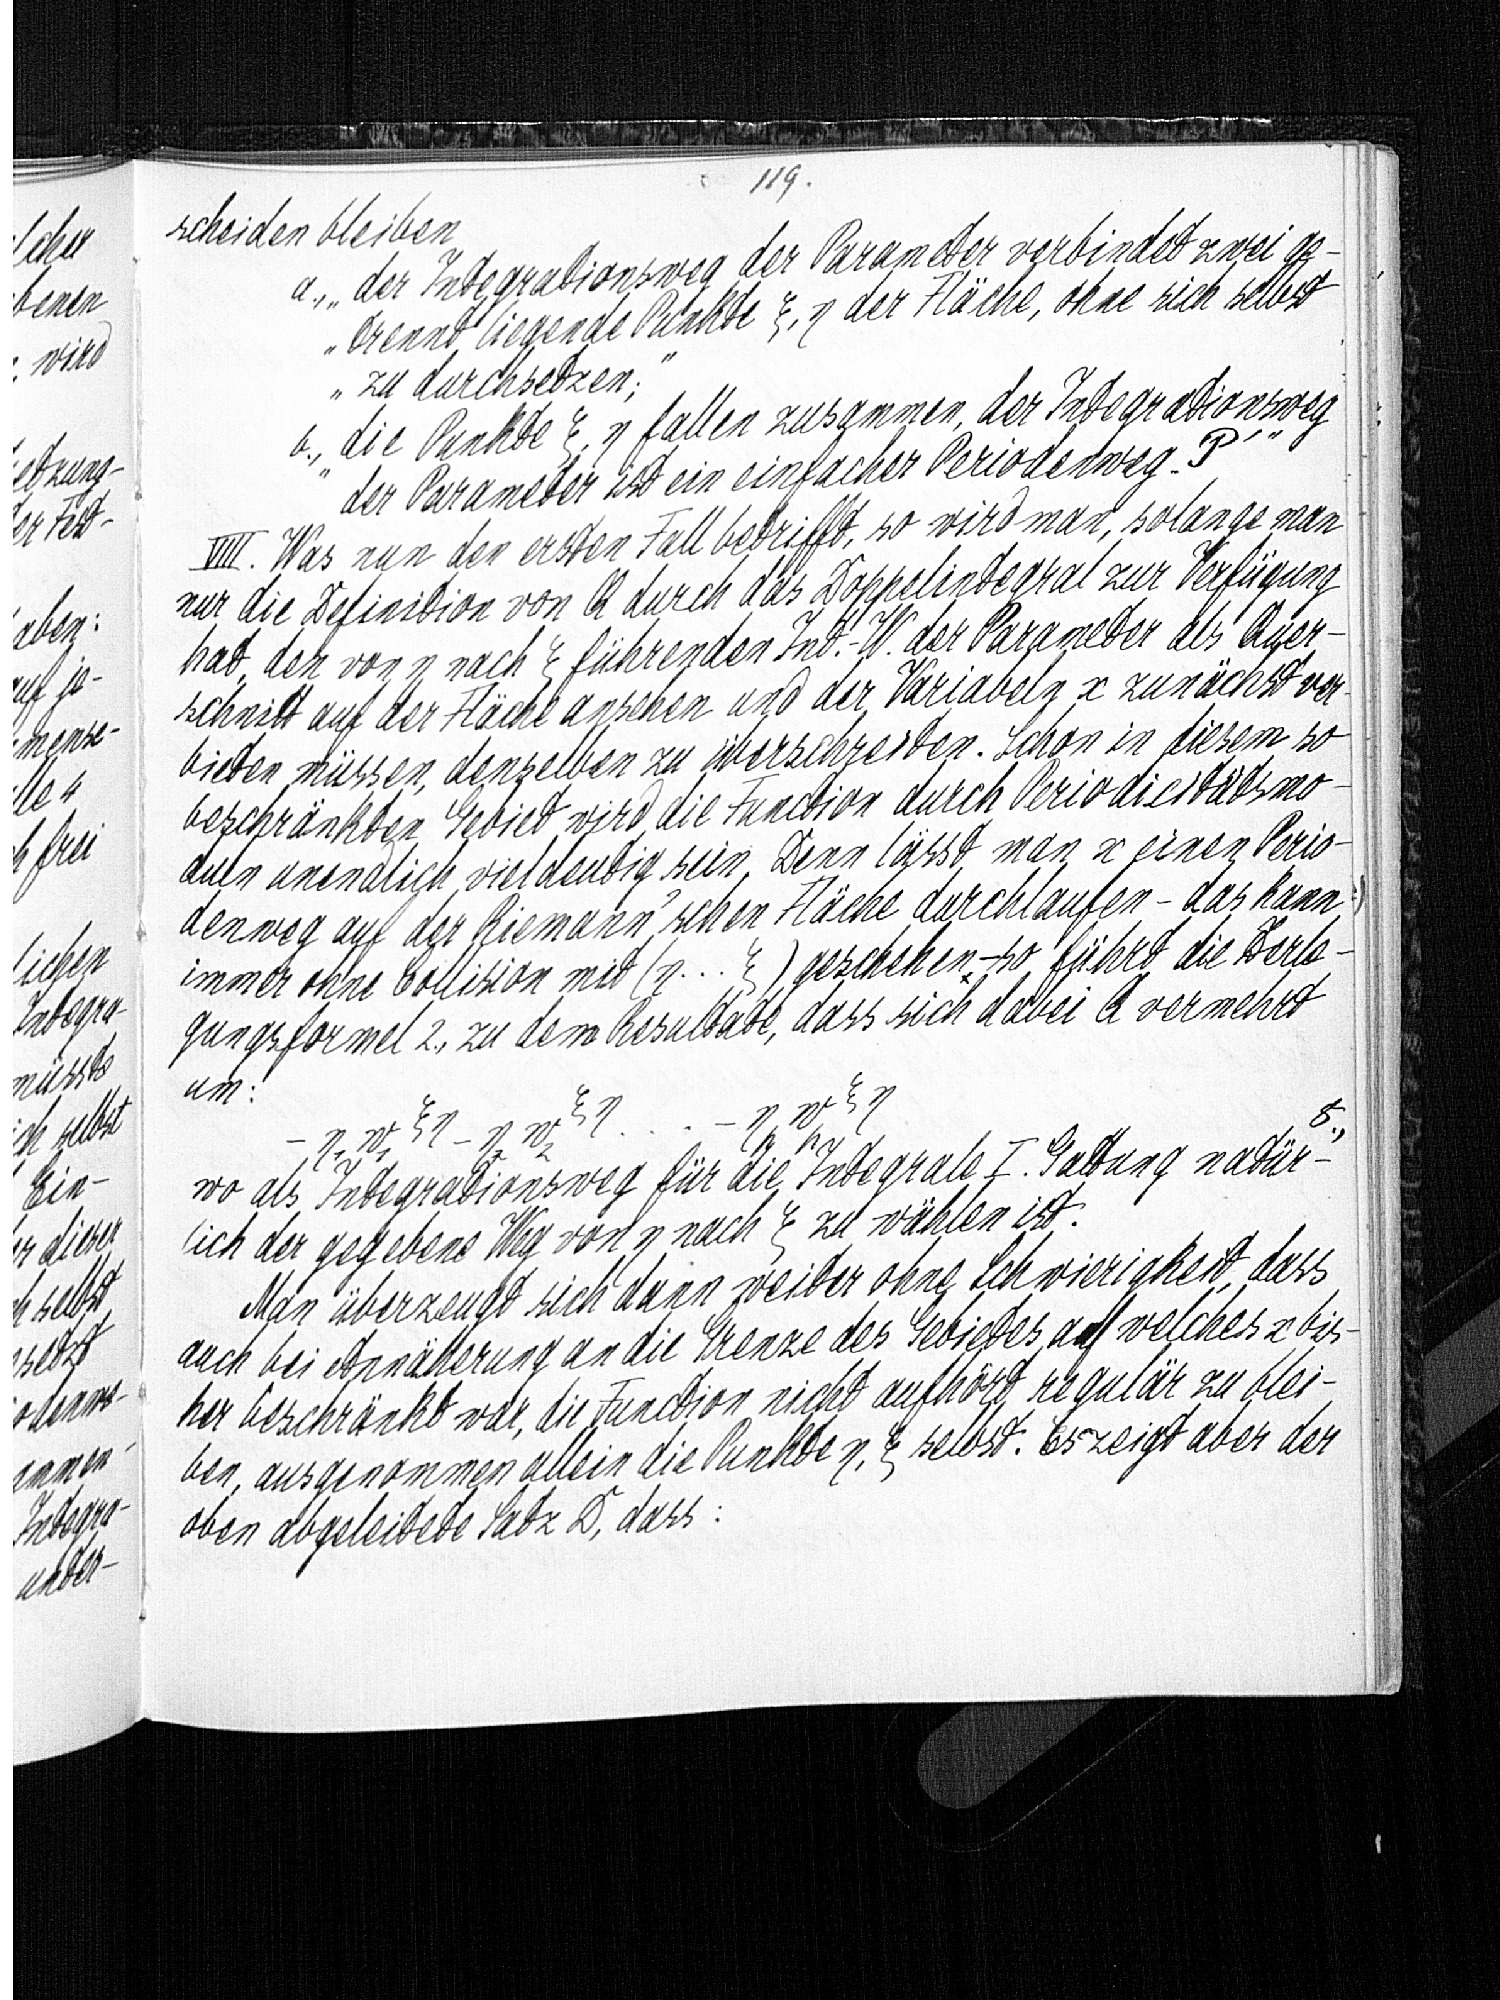 119.
scheiden bleiben
a., „der Integrationsweg der Parameter verbindet zwei ge-
„trennt liegende Punkte ξ, η der Fläche, ohne sich selbst
„zu durchsetzen;"
b., „die Punkte ξ, η fallen zusammen, der Integrationsweg
der Parameter ist ein einfacher Periodenweg P'"
VIII. Was nun den ersten Fall betrifft, so wird man, solange man
nur die Definition von Q durch das Doppelintegral zur Verfügung
hat, den von η nach ξ führenden Int.-W. der Parameter als Quer-
schnitt auf der Fläche ansehen und der Variabeln x zunächst ver-
bieten müssen, denselben zu überschreiten. Schon in diesem so
beschränkten Gebiet wird die Function durch Periodicitätsmo-
duln unendlich vieldeutig sein. Denn lässt man x einen Perio-
denweg auf der Riemann'schen Fläche durchlaufen – das kann :)
immer ohne Collision mit (η... ξ) geschehen – so führt die Zerle-
gungsformel 2., zu dem Resultate, dass sich dabei Q vermehrt
um:
– η₁ w₁^ξη – η₂ w₂^ξη . . . . – η_p w_p^ξη 5.,
wo als Integrationsweg für die Integrale I. Gattung natür-
lich der gegebene Weg von η nach ξ zu wählen ist.
Man überzeugt sich dann weiter ohne Schwierigkeit, dass
auch bei Annäherung an die Grenze des Gebietes auf welches x bis-
her beschränkt war, die Function nicht aufhört regulär zu blei-
ben, ausgenommen allein die Punkte η, ξ selbst. Es zeigt aber der
oben abgeleitete Satz D, dass: